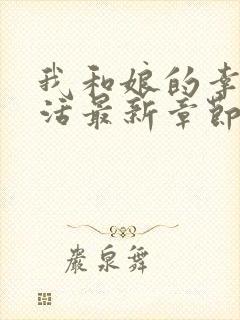 我和娘的幸
活最新章節
嚴泉舞